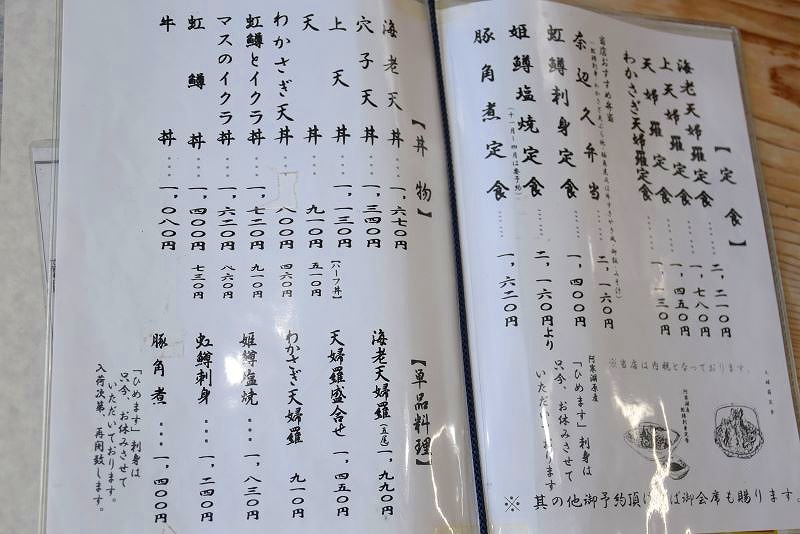 【定食】
海老天婦羅定食……二、二一〇円
上天婦羅定食……一、七八〇円
天婦羅定食……一、四五〇円
わかさぎ天婦羅定食……一、一三〇円
当店おすすめ弁当
奈辺久弁当……二、一六〇円
虹鱒刺身定食……一、四〇〇円
姫鱒塩焼定食……二、一六〇円より
(十一月~四月は要予約)
豚角煮定食……一、六二〇円
※当店は内税となっております。
阿寒湖原産
「ひめます」刺身は
只今、お休みさせて
いただいております
※其の他御予約頂ければ御会席も賜ります。
【丼物】
海老天丼…一、六七〇円
穴子天丼…一、三四〇円
上天丼…一、一三〇円【ハーフ丼】
天丼…九一〇円 五一〇円
わかさぎ天丼…八〇〇円 四六〇円
虹鱒とイクラ丼…一、七二〇円 九一〇円
マスのイクラ丼…一、六二〇円 八六〇円
虹鱒丼…一、四〇〇円 七三〇円
牛丼…一、〇八〇円
【単品料理】
海老天婦羅(五尾)一、九九〇円
天婦羅盛合せ一、四五〇円
わかさぎ天婦羅 九一〇円
姫鱒塩焼…一、八三〇円
虹鱒刺身…一、二四〇円
豚角煮…一、四〇〇円
「ひめます」刺身は
只今、お休みさせて
いただいております。
入荷次第、再開致します。